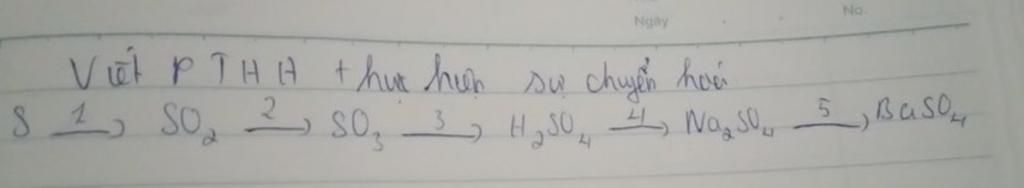 Ngày No.
Viết PTHH thực hiện sự chuyển hoá
S 1→ SO₂ 2→ SO₃ 3→ H₂SO₄ 4→ Na₂SO₄ 5→ BaSO₄